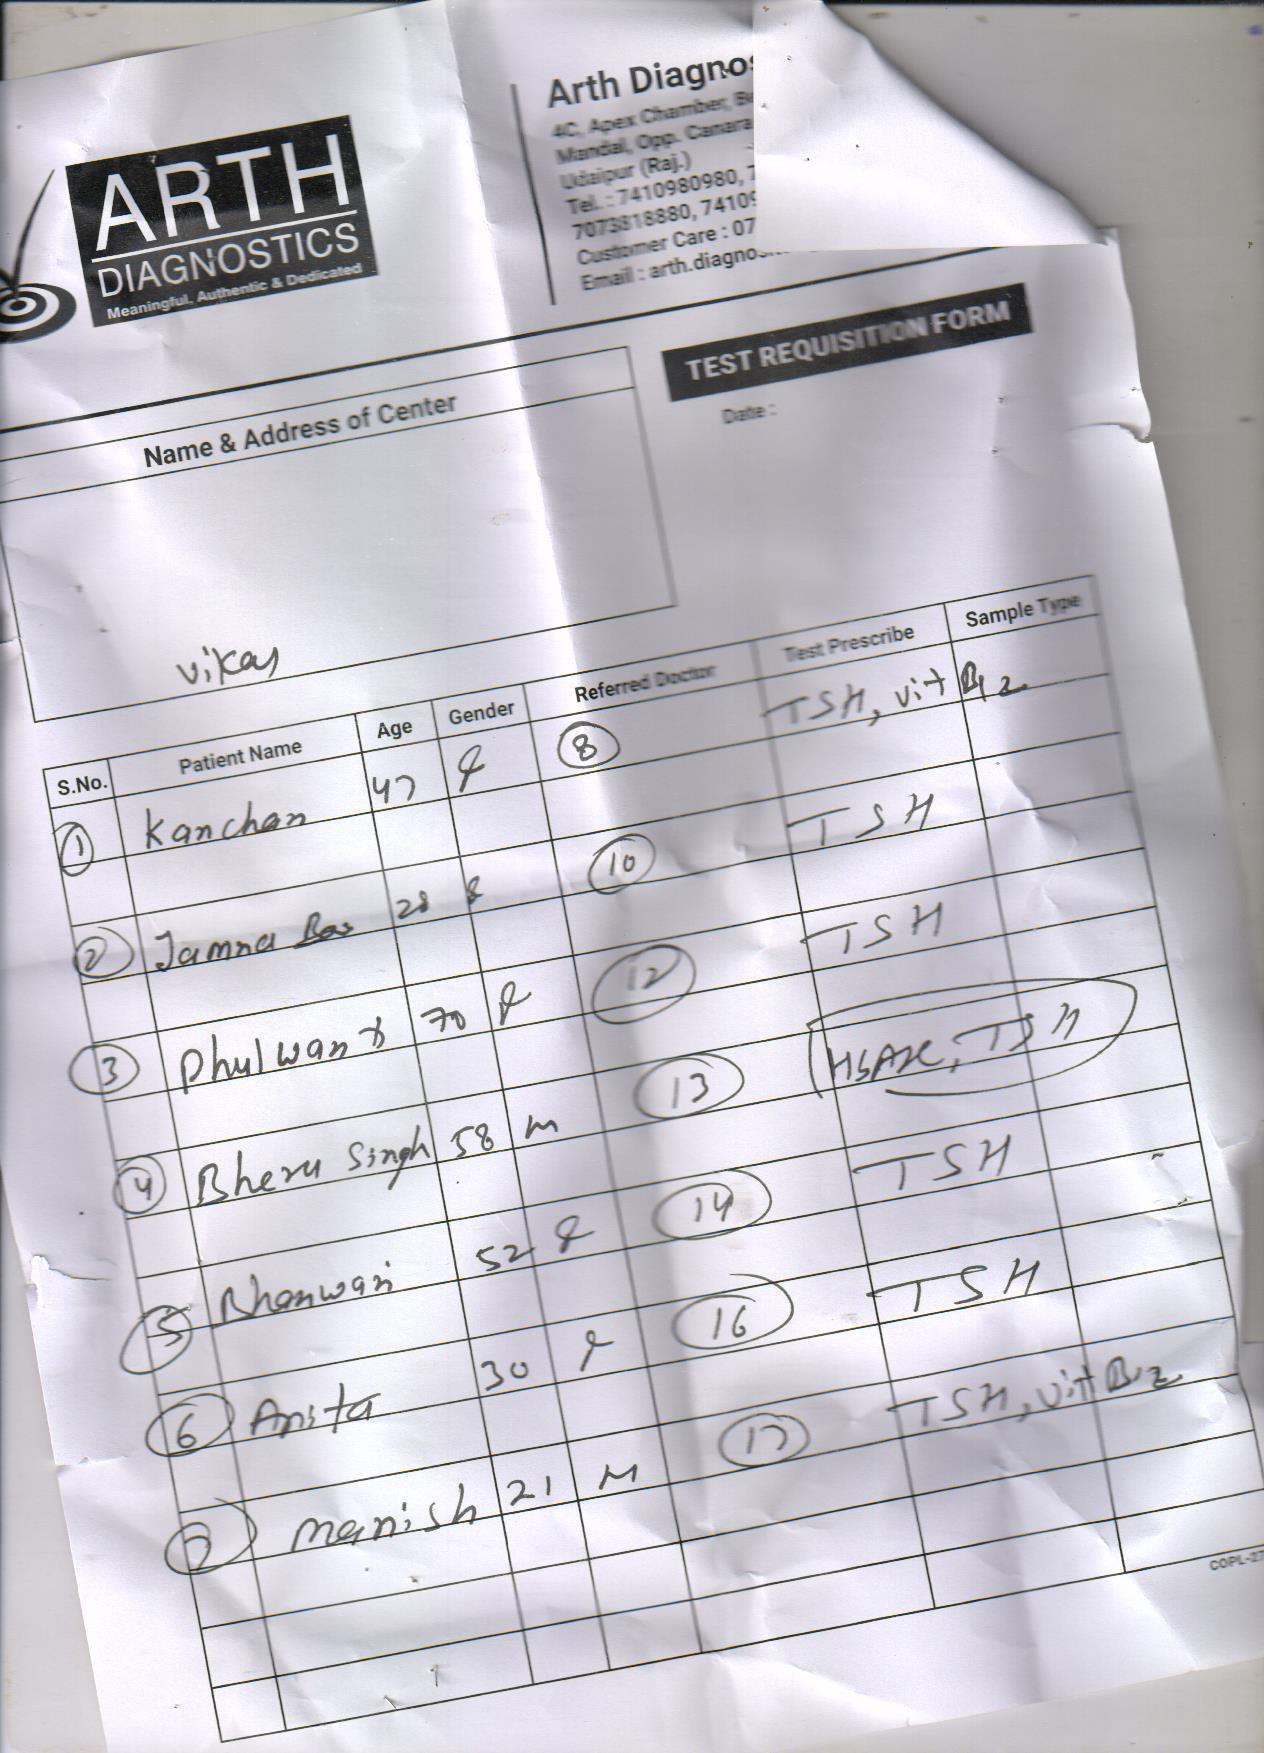 ARTH
DIAGNOSTICS
Meaningful, Authentic & Dedicated
Arth Diagnos
4C, Apex Chamber, Be
Mandal, Opp. Canara
Udaipur (Raj.)
Tel. : 7410980980, 7
7073818880, 7410
Customer Care : 07
Email : arth.diagnos
TEST REQUISITION FORM
Date :
Name & Address of Center
vikas
S.No. Patient Name Age Gender Referred Doctor Test Prescribe Sample Type
1 Kanchan 47 f 8 TSH, vit B12
2 Jamna 28 f 10 TSH
3 Phulwant 70 f 12 TSH
4 Bheru Singh 58 m 13 HbA1c, TSH
5 Bhanwari 52 f 14 TSH
6 Anita 30 f 16 TSH
7 Manish 21 M 17 TSH, vit B12
COPL-27